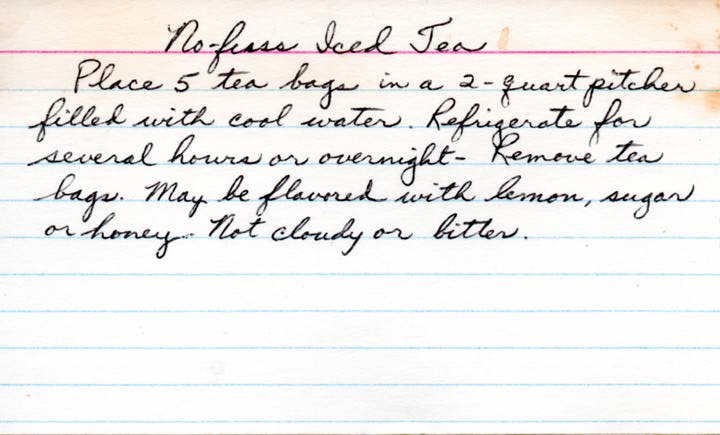 No-fuss Iced Tea
Place 5 tea bags in a 2-quart pitcher
filled with cool water. Refrigerate for
several hours or overnight- Remove tea
bags. May be flavored with lemon, sugar
or honey. Not cloudy or bitter.